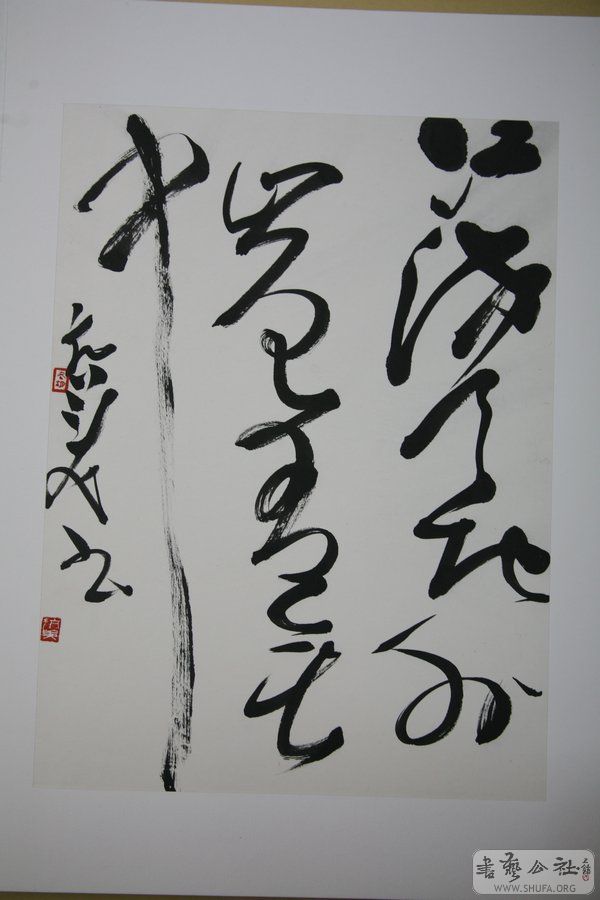 江流天地外
山色有无
中
书
書藝公社
WWW.SHUFA.ORG